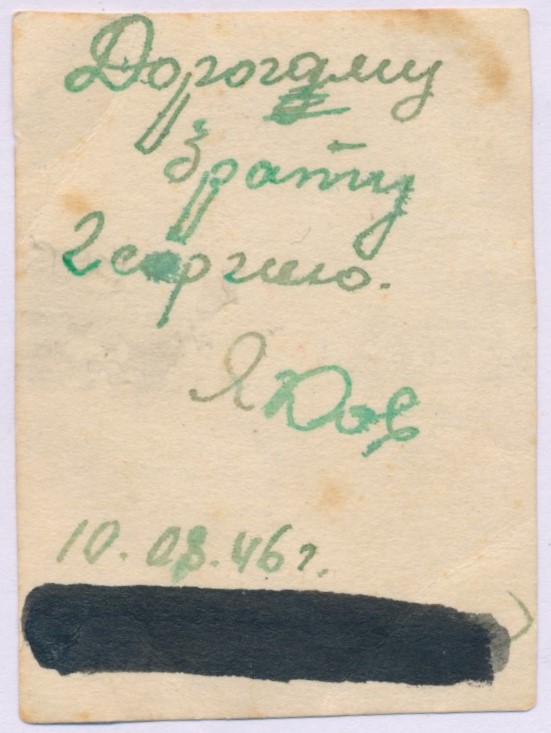 Дорогому
брату
Георгию.
Яков
10.08.46г.